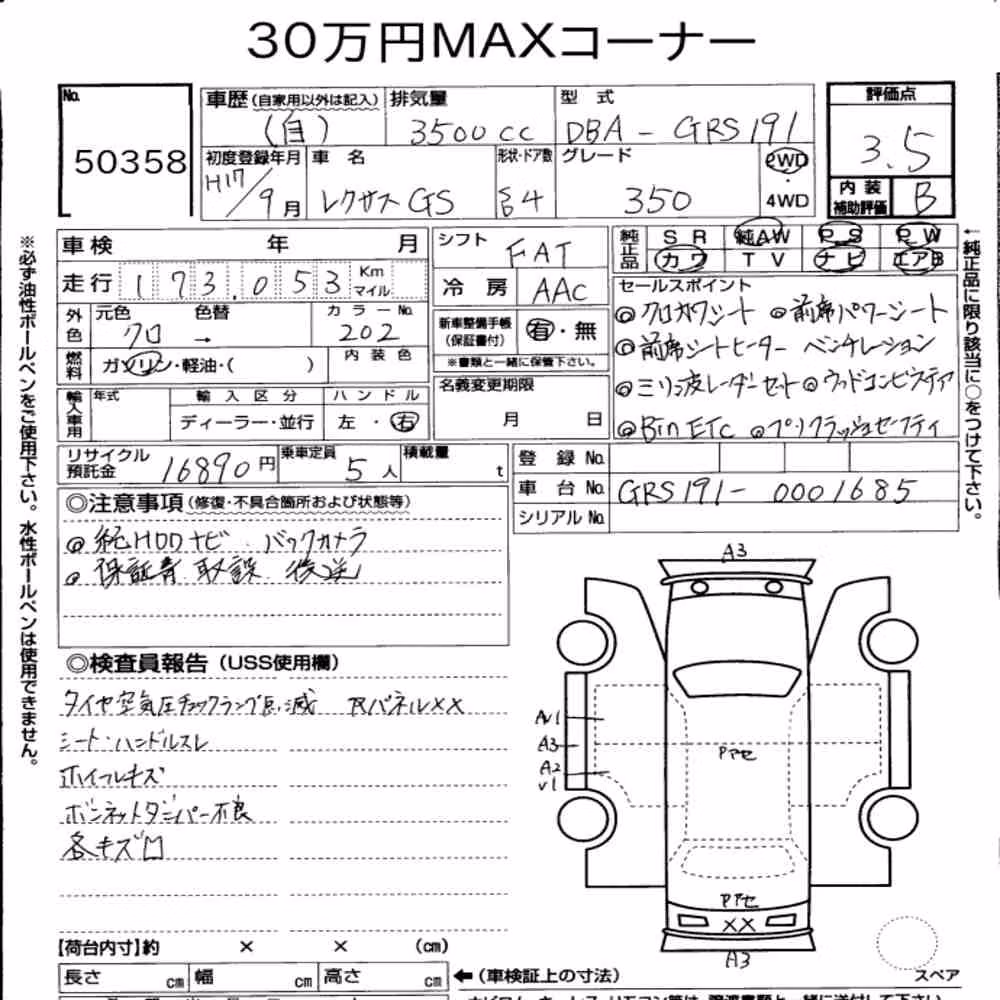 30万円MAXコーナー
No.
50358
車歴 (自家用以外は記入) 排気量 型 式 評価点
(自) 3500cc DBA - GRS191 3.5
初度登録年月 車 名 形状・ドア数 グレード 2WD
H17/9月 レクサス GS 4 350 ・ 4WD
内装補助評価 B
車検 年 月 シフト FAT 純正品 SR 純AW PS PW
カワ TV ナビ エアB
走行 173,053 Km マイル 冷房 AAC
セールスポイント
外色 元色 色替 カラーNo. 新車整備手帳 (保証書付) 有・無
クロ → 202
◎クロカワシート ◎前席パワーシート
燃料 ガソリン・軽油・( ) 内装色 ※書類と一緒に保管下さい。
◎前席シートヒーター ベンチレーション
名義変更期限
◎ミリ波レーダーセット ◎ウッドコンビステア
輸入車用 年式 輸入区分 ハンドル 月 日
ディーラー・並行 左・右
◎BinETC ◎プリクラッシュセーフティ
リサイクル預託金 16890円 乗車定員 5人 積載量 t 登録No.
車台No. GRS191- 0001685
シリアルNo.
◎注意事項(修復・不具合箇所および状態等)
◎純HDDナビ.バックカメラ
◎保証書 取説 後送
◎検査員報告(USS使用欄)
タイヤ空気圧チェックランプ点滅 RパネルXX
シート・ハンドルスレ
ホイールキズ
ボンネットダンパー不良
各キズ凹
A3
AU1
A3
A2
U1
Pアセ
Pアセ
XX
A3
【荷台内寸】約 × × (cm)
長さ cm 幅 cm 高さ cm ←(車検証上の寸法)
スペア
※必ず油性ボールペンをご使用下さい。水性ボールペンは使用できません。
←純正品に限り該当に○をつけて下さい。